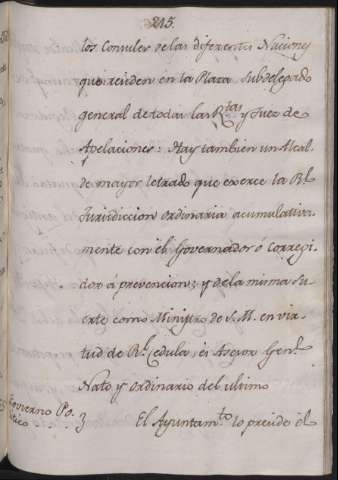 215.
los Consules de las diferentes Naciones
que reciden en la Plaza Subdelegado
general de todas las R.tas y Juez de
Apelaciones: Hay tambien un Alcal
de mayor letrado que exerce la R.l
Jurisdiccion ordinaria acumulativa-
mente con el Governador ó Corregi
dor á prevencion; y de la misma su
erte como Ministro de S.M. en vir
tud de R.l Cedula, es Asesor Gen.l
Nato y ordinario del ultimo
Governo Po.
litico
El Ayuntam.to lo preside el